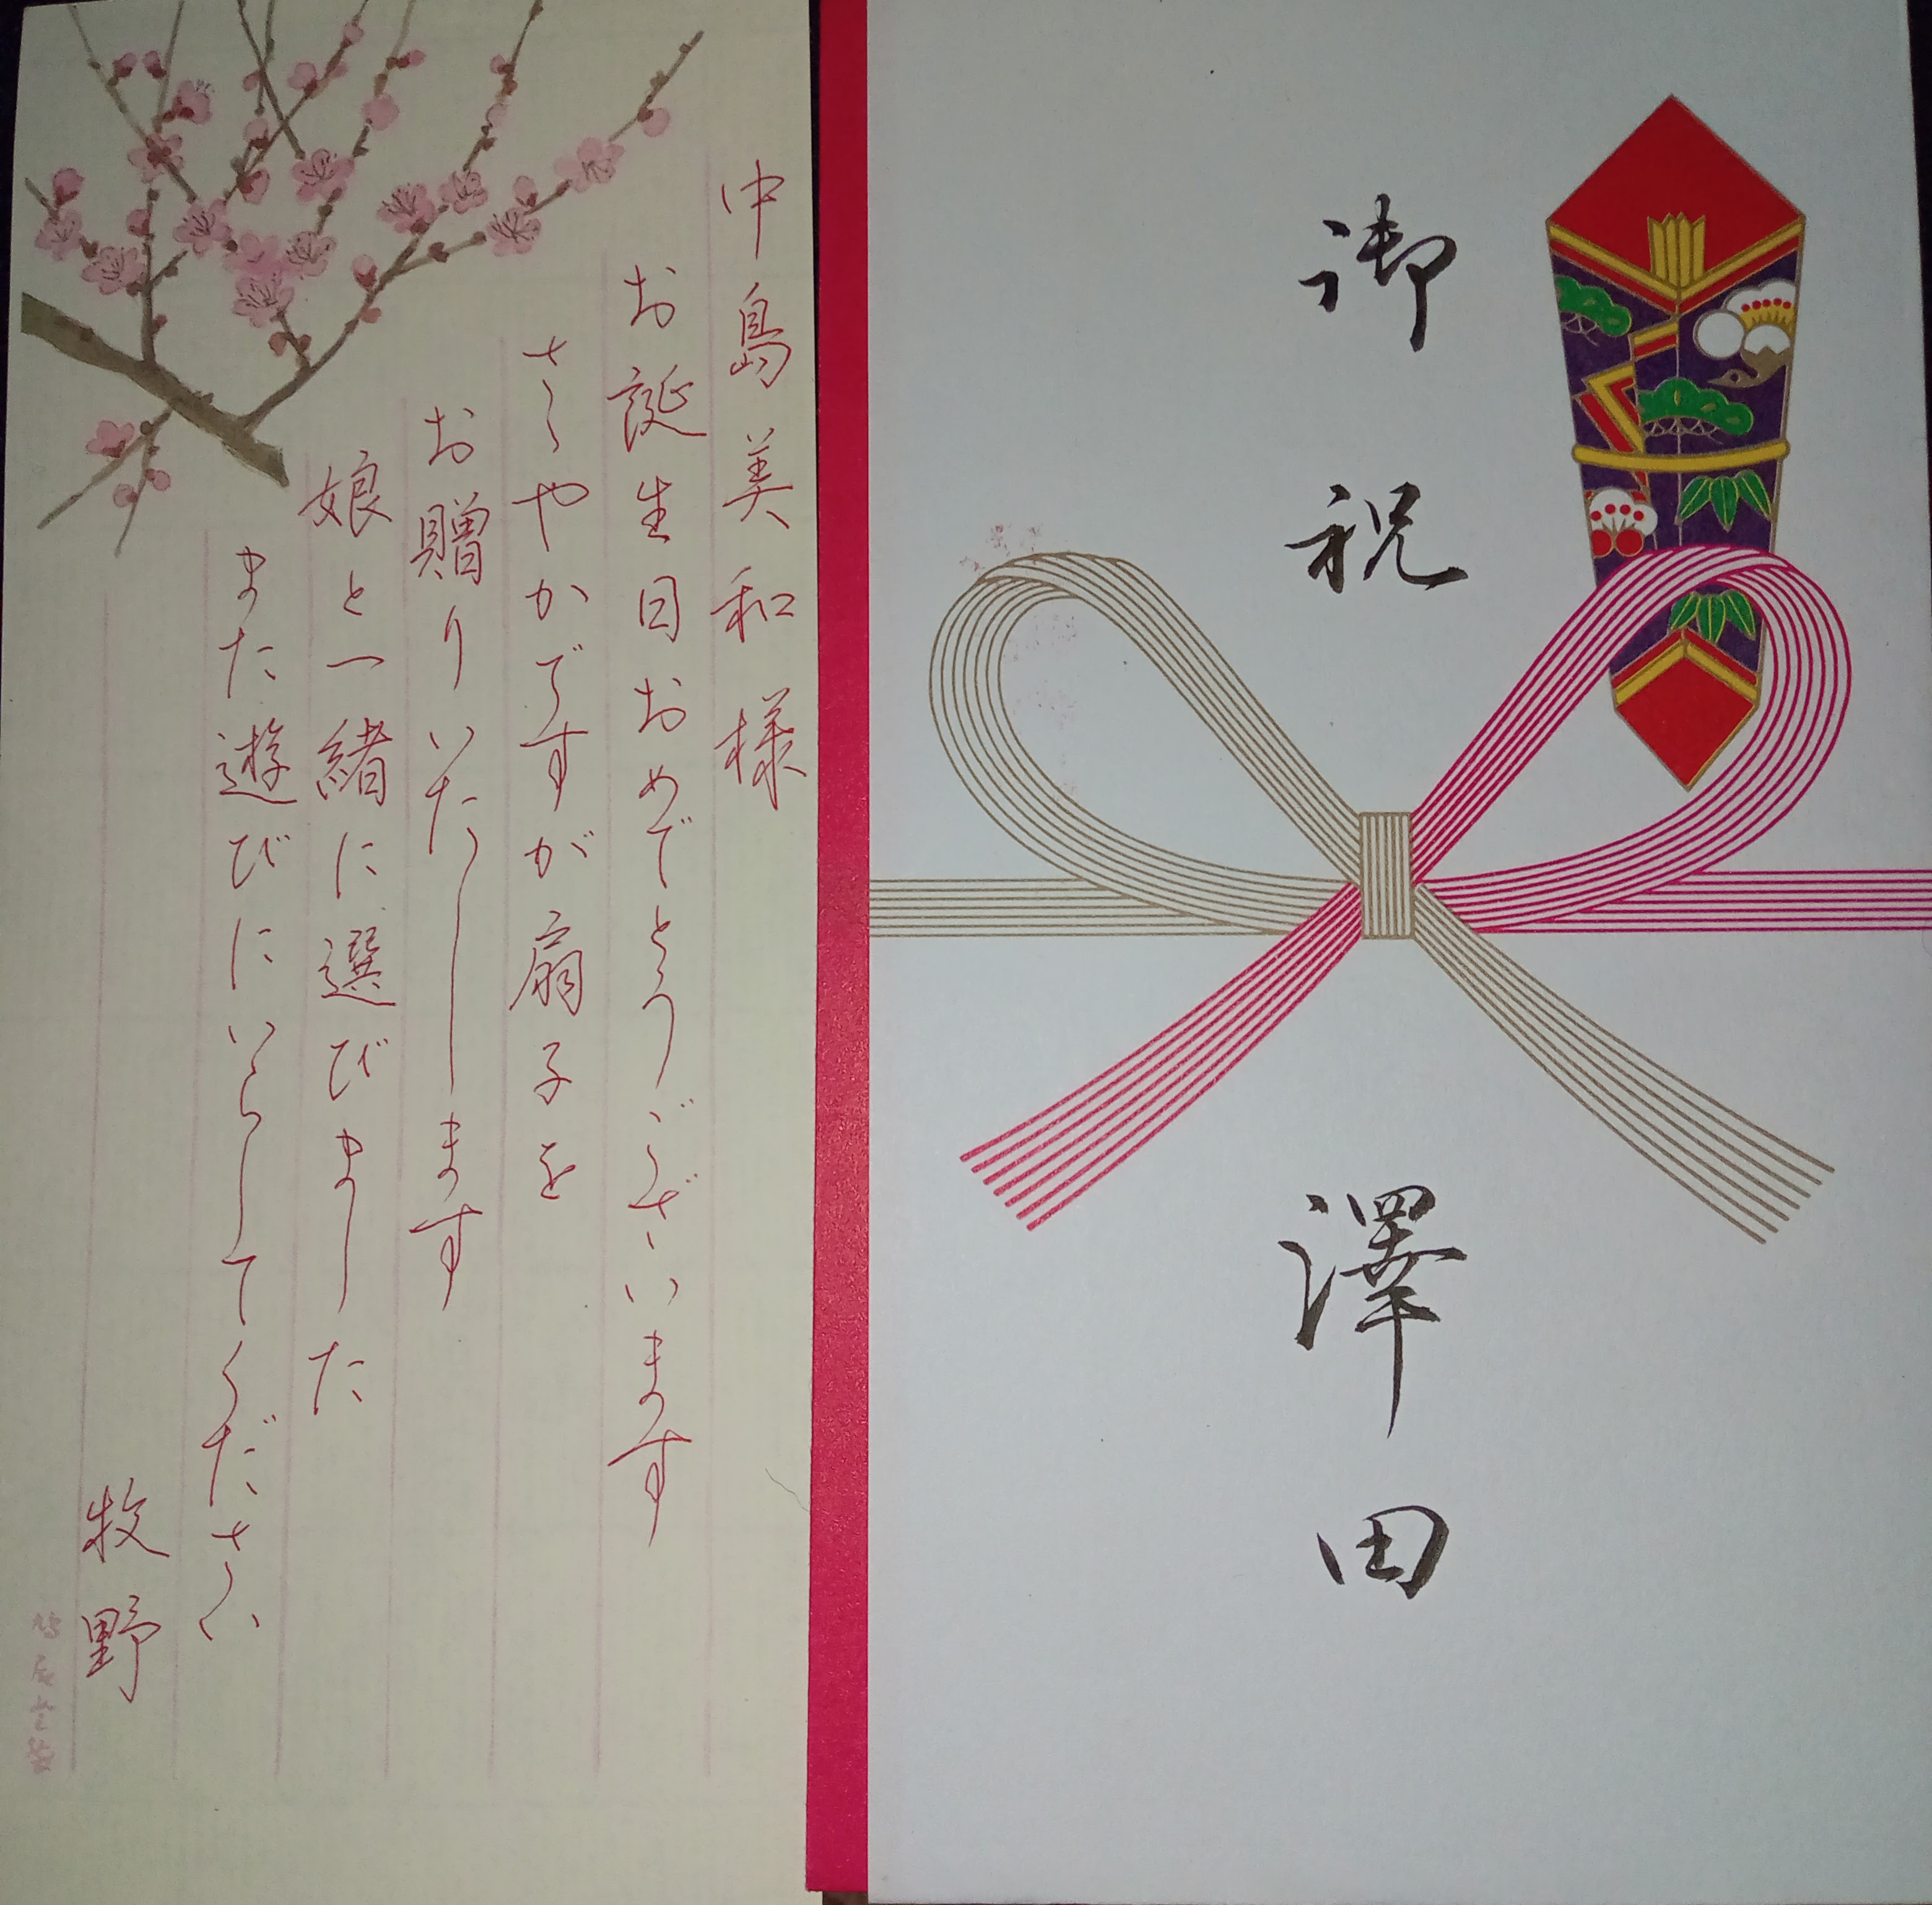 御祝
澤田
中島美和様
お誕生日おめでとうございます
さゝやかですが扇子を
お贈りいたします
娘と一緒に選びました
また遊びにいらしてください
牧野
鳩居堂製